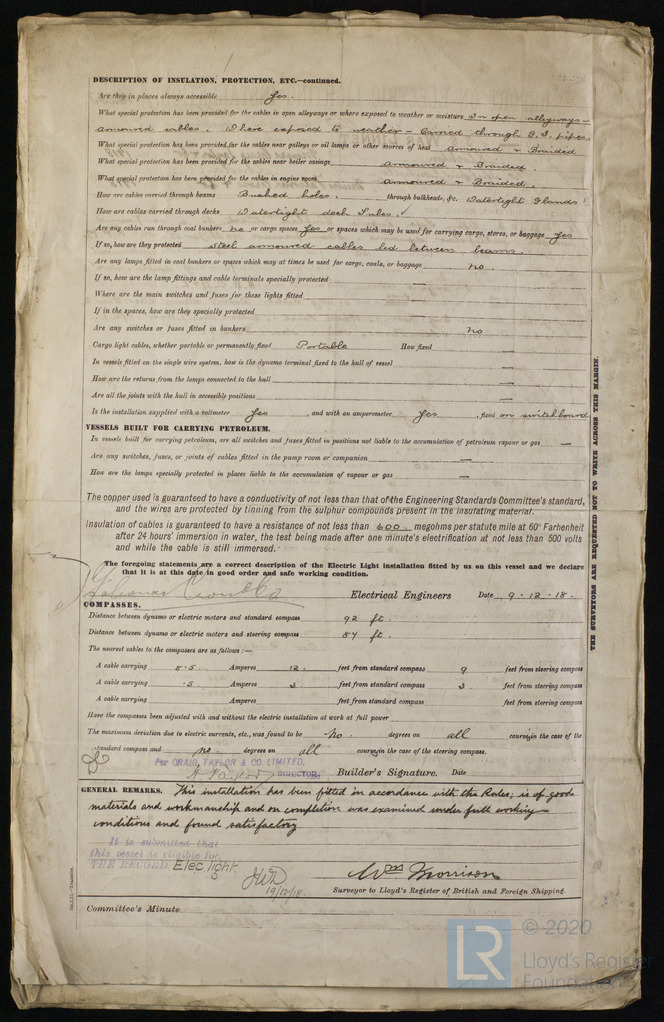 DESCRIPTION OF INSULATION, PROTECTION, ETC.—continued.
Are they in places always accessible Yes.
What special protection has been provided for the cables in open alleyways or where exposed to weather or moisture In open alleyways—
armoured cables. Where exposed to weather — Carried through G.I. pipes
What special protection has been provided for the cables near galleys or oil lamps or other sources of heat Armoured & Braided
What special protection has been provided for the cables near boiler casings Armoured & Braided
What special protection has been provided for the cables in engine room Armoured & Braided.
How are cables carried through beams Bushed holes. through bulkheads, &c. Watertight Glands
How are cables carried through decks Watertight deck Tubes.
Are any cables run through coal bunkers no or cargo spaces Yes or spaces which may be used for carrying cargo, stores, or baggage Yes
If so, how are they protected steel armoured cables led between beams.
Are any lamps fitted in coal bunkers or spaces which may at times be used for cargo, coals, or baggage no.
If so, how are the lamp fittings and cable terminals specially protected —
Where are the main switches and fuses for these lights fitted —
If in the spaces, how are they specially protected —
Are any switches or fuses fitted in bunkers no
Cargo light cables, whether portable or permanently fixed Portable How fixed —
In vessels fitted on the single wire system, how is the dynamo terminal fixed to the hull of vessel —
How are the returns from the lamps connected to the hull —
Are all the joints with the hull in accessible positions —
Is the installation supplied with a voltmeter Yes , and with an amperemeter Yes , fixed on switchboard
VESSELS BUILT FOR CARRYING PETROLEUM.
In vessels built for carrying petroleum, are all switches and fuses fitted in positions not liable to the accumulation of petroleum vapour or gas —
Are any switches, fuses, or joints of cables fitted in the pump room or companion —
How are the lamps specially protected in places liable to the accumulation of vapour or gas —
The copper used is guaranteed to have a conductivity of not less than that of the Engineering Standards Committee's standard,
and the wires are protected by tinning from the sulphur compounds present in the insulating material.
Insulation of cables is guaranteed to have a resistance of not less than 600 megohms per statute mile at 60° Farhenheit
after 24 hours' immersion in water, the test being made after one minute's electrification at not less than 500 volts
and while the cable is still immersed.
The foregoing statements are a correct description of the Electric Light installation fitted by us on this vessel and we declare
that it is at this date in good order and safe working condition.
Electrical Engineers Date 9.12.18.
COMPASSES.
Distance between dynamo or electric motors and standard compass 92 ft.
Distance between dynamo or electric motors and steering compass 87 ft.
The nearest cables to the compasses are as follows:—
A cable carrying 8.5. Amperes 12. feet from standard compass 9 feet from steering compass
A cable carrying .5 Amperes 3 feet from standard compass 3 feet from steering compass
A cable carrying Amperes feet from standard compass feet from steering compass
Have the compasses been adjusted with and without the electric installation at work at full power
The maximum deviation due to electric currents, etc., was found to be No. degrees on all course in the case of the
standard compass and no. degrees on all course in the case of the steering compass.
For CRAIG, TAYLOR & CO. LIMITED,
A Taylor DIRECTOR. Builder's Signature. Date
GENERAL REMARKS. This installation has been fitted in accordance with the Rules; is of good
materials and workmanship and on completion was examined under full working
conditions and found satisfactory
It is submitted that
this vessel is eligible for
THE RECORD. Elec. light
19/12/18.
Wm Morrison
Surveyor to Lloyd's Register of British and Foreign Shipping.
Committee's Minute
THE SURVEYORS ARE REQUESTED NOT TO WRITE ACROSS THIS MARGIN.
LR
© 2020
Lloyd's Register
Foundation